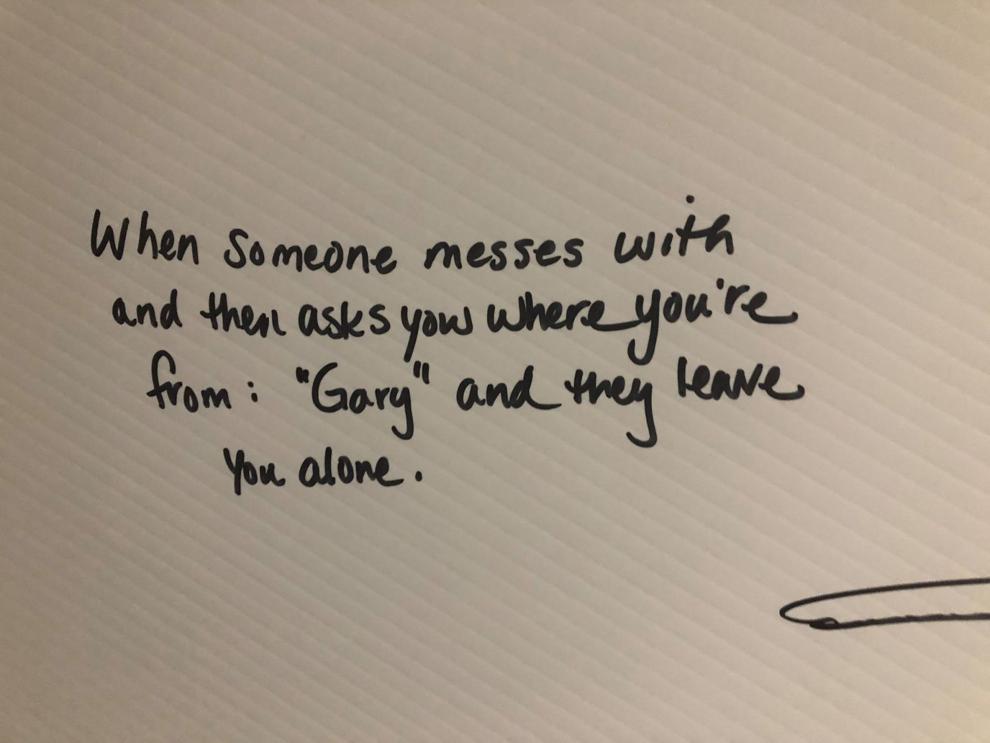 When someone messes with
and then asks you where you're
from: "Gary" and they leave
you alone.